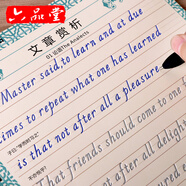 六品堂
文章赏析
01 论语The Analects
Master said,to learn and at due
times to repeat what one has learned
is that not after all a pleasure
that friends should come to one
not after all delight